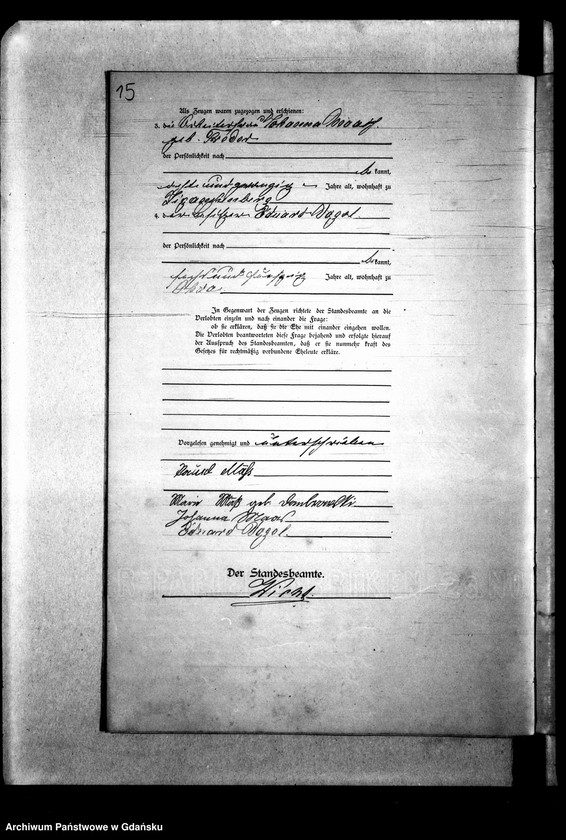 15
Als Zeugen waren zugezogen und erschienen:
3. die Arbeiterfrau Johanna
geb.
der Persönlichkeit nach
be kannt,
acht und zwanzig Jahre alt, wohnhaft zu
4. der Besitzer Eduard Bogal
der Persönlichkeit nach
be kannt,
sechs und Jahre alt, wohnhaft zu
In Gegenwart der Zeugen richtete der Standesbeamte an die
Verlobten einzeln und nach einander die Frage:
ob sie erklären, daß sie die Ehe mit einander eingehen wollen.
Die Verlobten beantworteten diese Frage bejahend und erfolgte hierauf
der Ausspruch des Standesbeamten, daß er sie nunmehr kraft des
Gesetzes für rechtmäßig verbundene Eheleute erkläre.
Vorgelesen genehmigt und unterschrieben
Maß
Marie Maß geb Dombrowski
Johanna
Eduard Bogal
Der Standesbeamte.
Archiwum Państwowe w Gdańsku